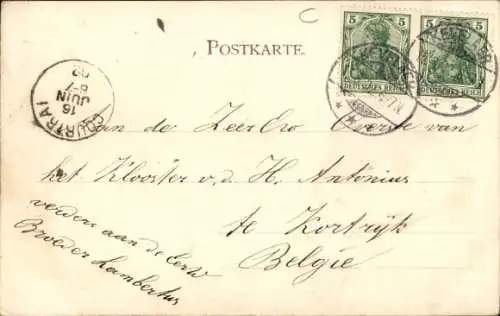 C
5 5
5 5
DEUTSCHES REICH
DEUTSCHES REICH
POSTKARTE.
KEVELAER
KEVELAER
COURTRAI
16
JUIN
6-7
02
aan de Zeer Eerw Overste van
het Klooster v.d. H. Antonius
te Kortrijk
Belgie
verders aan de Eerw
Broeder Lambertus